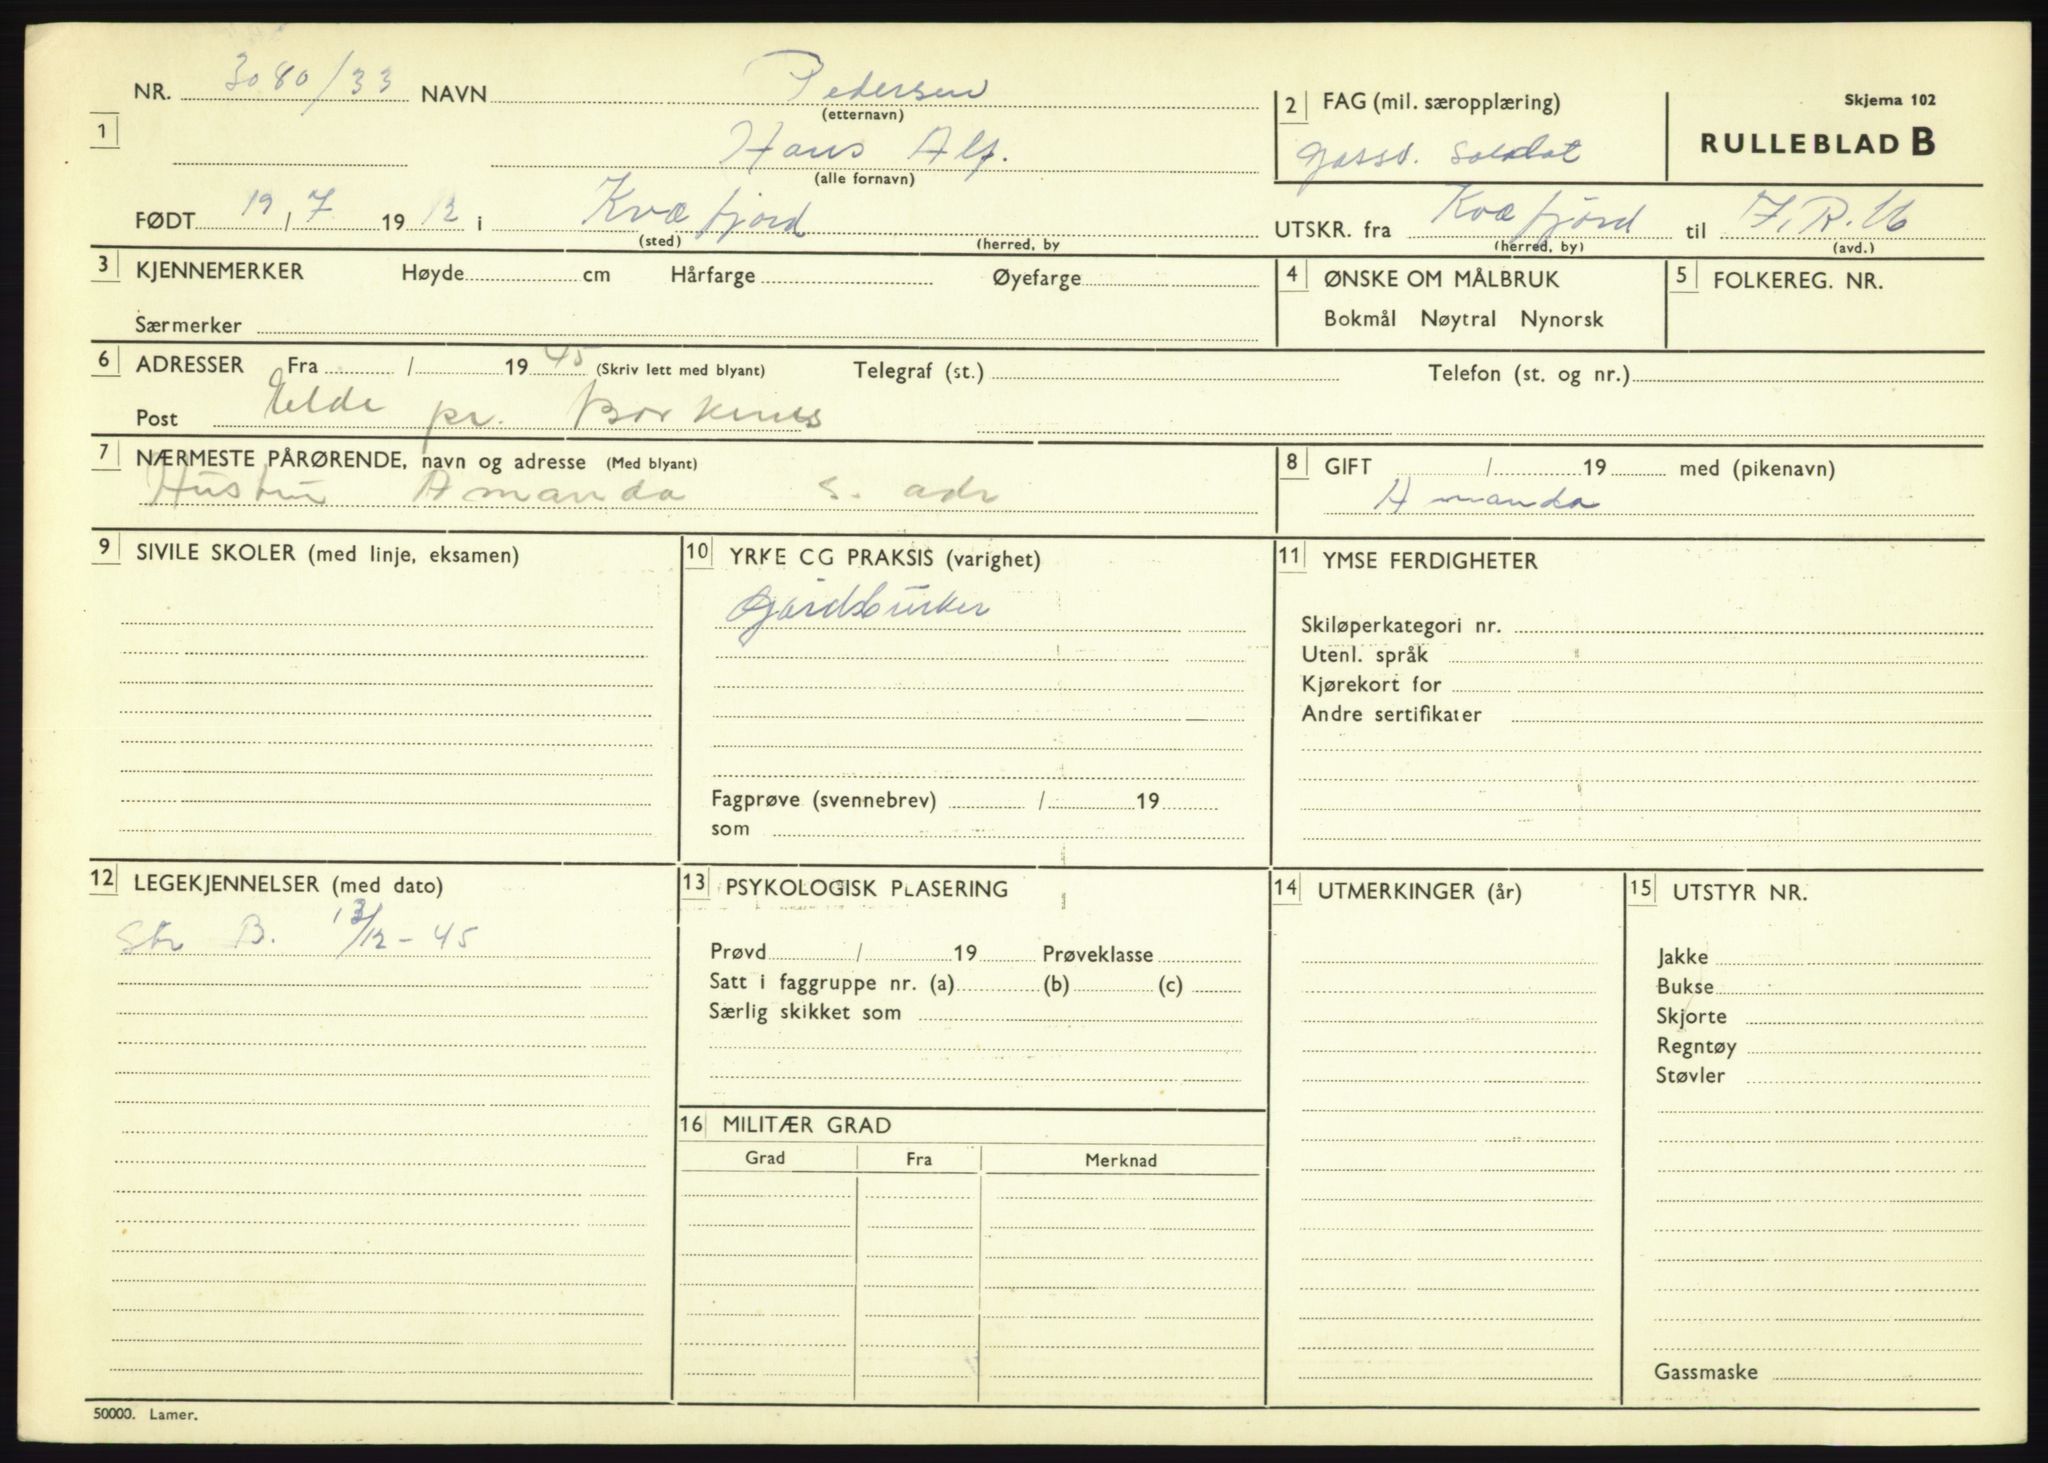 Skjema 102
RULLEBLAD B
1
NR. 3080/33 NAVN Pedersen
(etternavn)
Hans Alf.
(alle fornavn)
FØDT 19/7 1912 i Kvæfjord
(sted) (herred, by
2 FAG (mil. særopplæring)
soldat
UTSKR. fra Kvæfjord til I.R.16
(herred, by) (avd.)
3 KJENNEMERKER Høyde cm Hårfarge Øyefarge
Særmerker
4 ØNSKE OM MÅLBRUK
Bokmål Nøytral Nynorsk
5 FOLKEREG. NR.
6 ADRESSER Fra / 1945 (Skriv lett med blyant) Telegraf (st.) Telefon (st. og nr.)
Post Elde pr. Borkenes
7 NÆRMESTE PÅRØRENDE, navn og adresse (Med blyant)
Hustru Amanda s. adr
8 GIFT / 19 med (pikenavn)
Amanda
9 SIVILE SKOLER (med linje, eksamen)
10 YRKE CG PRAKSIS (varighet)
Gårdsbruker
Fagprøve (svennebrev) / 19
som
11 YMSE FERDIGHETER
Skiløperkategori nr.
Utenl. språk
Kjørekort for
Andre sertifikater
12 LEGEKJENNELSER (med dato)
Str B. 13/12-45
13 PSYKOLOGISK PLASERING
Prøvd / 19 Prøveklasse
Satt i faggruppe nr. (a) (b) (c)
Særlig skikket som
14 UTMERKINGER (år)
15 UTSTYR NR.
Jakke
Bukse
Skjorte
Regntøy
Støvler
Gassmaske
16 MILITÆR GRAD
Grad Fra Merknad
50000. Lamer.